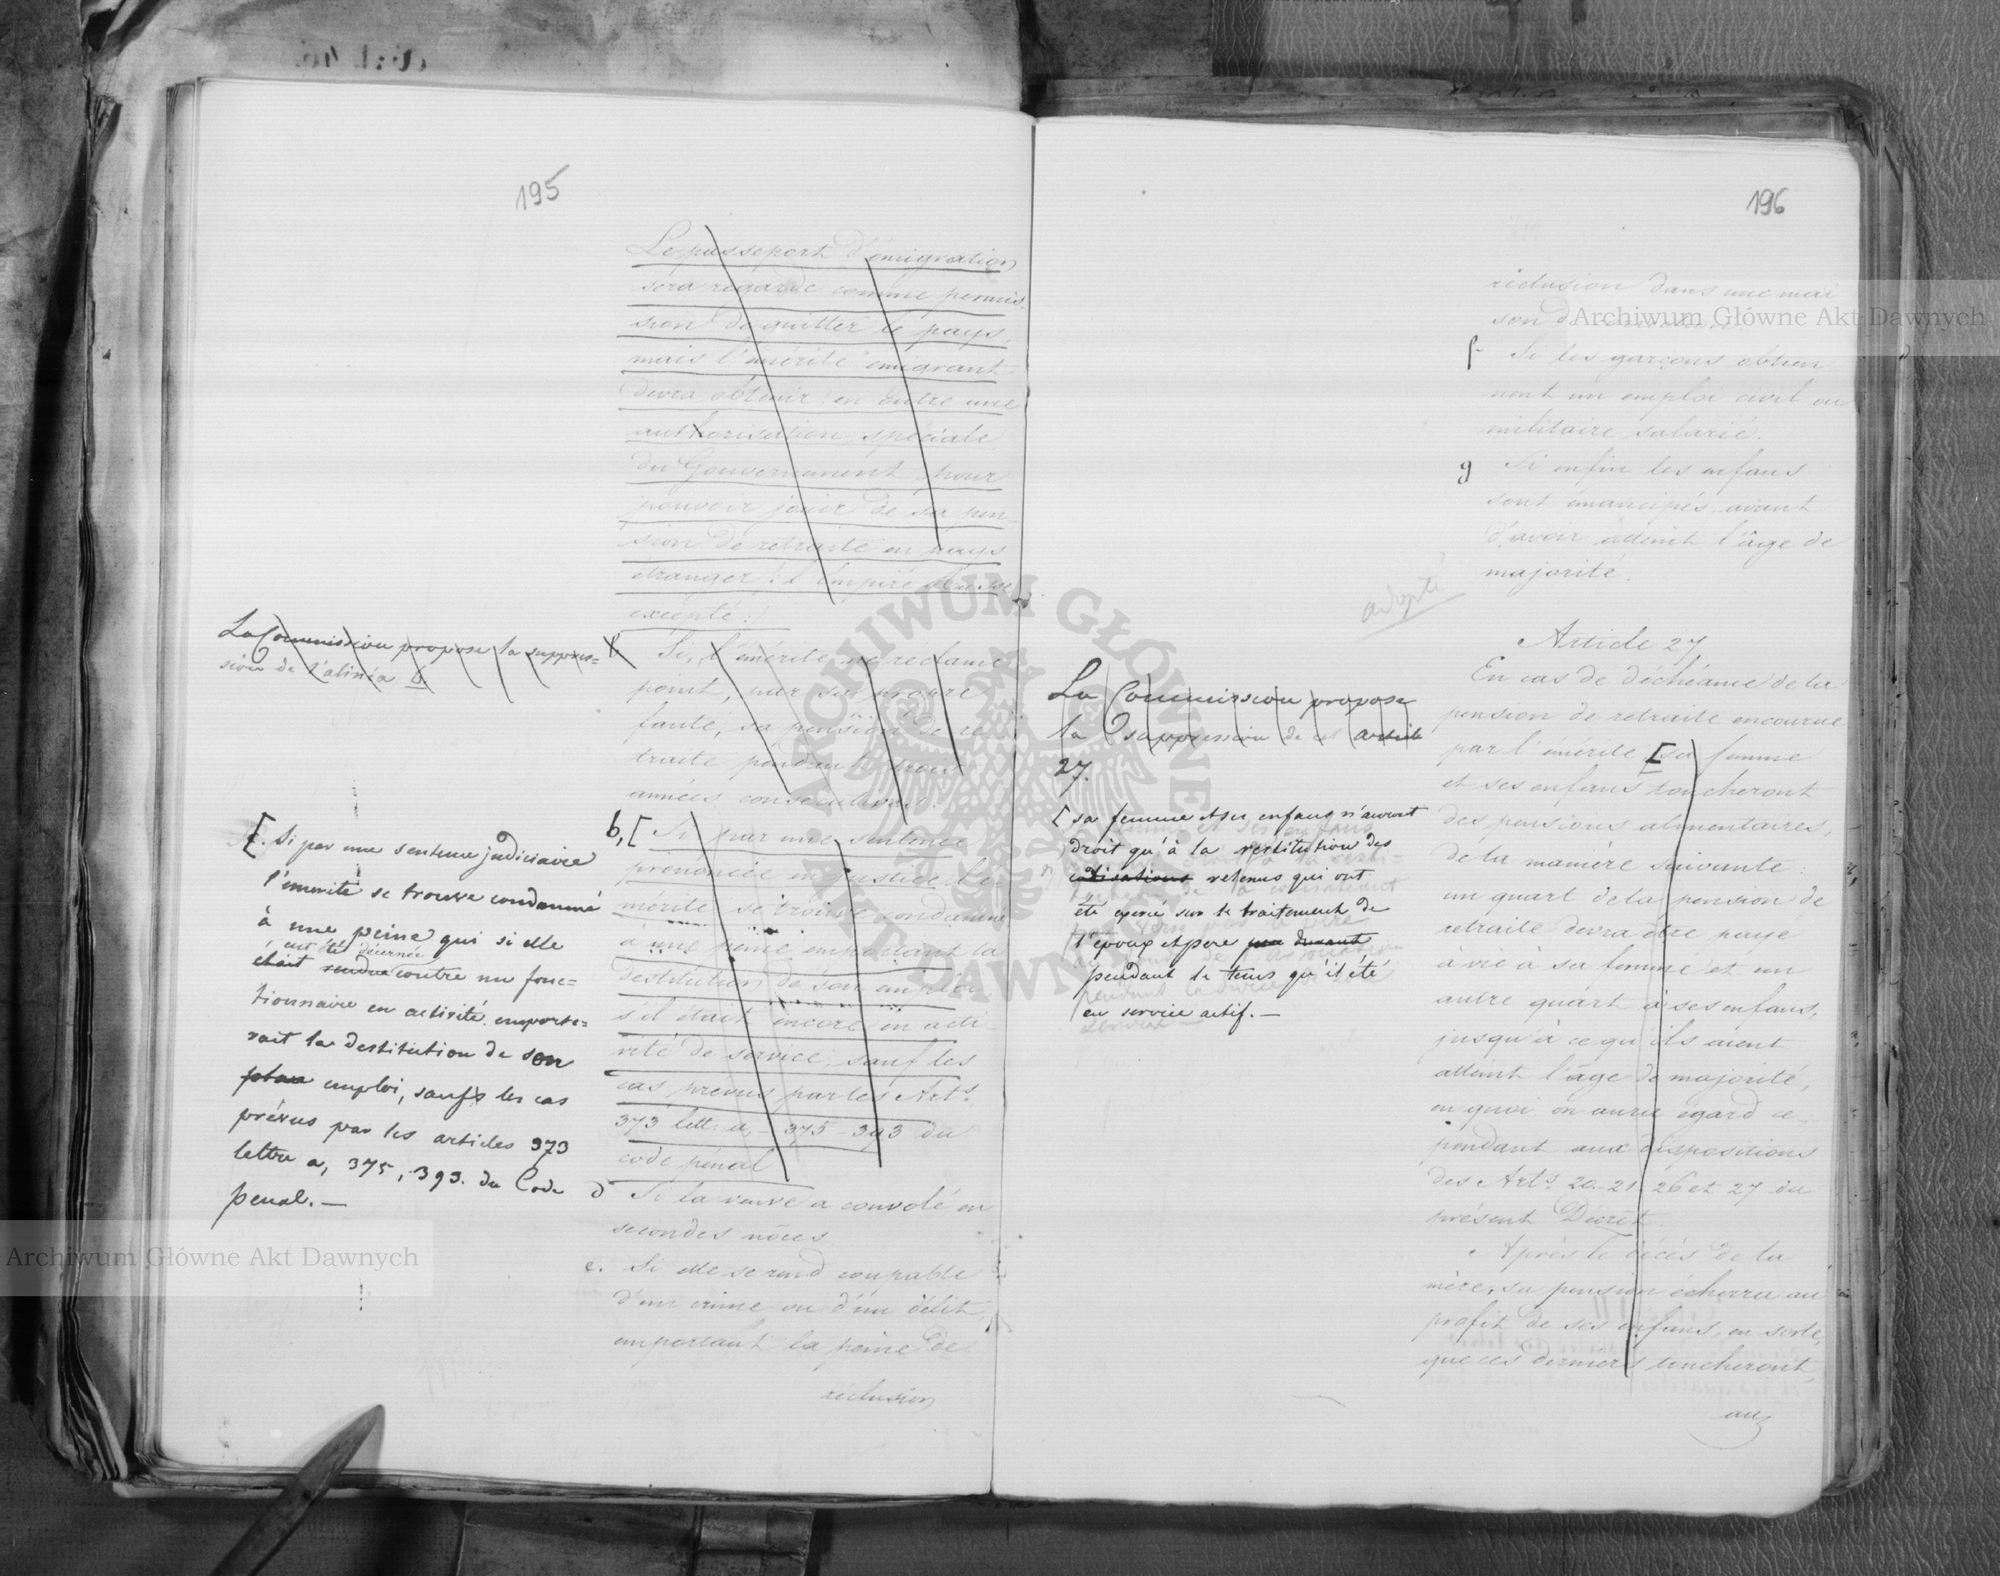 195
Le passeport d'émigration
sera regardé comme permis-
sion de quitter le pays,
mais l'émérite émigrant
devra obtenir en outre une
authorisation spéciale
du Gouvernement pour
pouvoir jouir de sa pen-
sion de retraite en pays
étranger /: l'Empire
excepté :/
La Commission propose la suppres=
sion de l'alinéa b
b Si, l'émérite ne reclame
point, par sa propre
faute, sa pension de re-
traite pendant trois
années consecutives.
[. Si par une sentence judiciaire
l'émerite se trouve condamné
à une peine qui si elle
eut été décernée
était rendue contre un fonc=
tionnaire en activité emporte=
rait la destitution de son
place emploi, saufs les cas
prévus par les articles 373
lettre a, 375, 393. du Code
penal.—
b, [ Si par une sentence
prénoncée en justice l'é-
mérite se trouve condamné
à une peine emportant la
destitution de son emploi
s'il était encore en acti-
vité de service, sauf les
cas prevus par les Arts
373 lett. a, - 375 - 393 du
code pénal
d Si la veuve a convolé en
secondes nôces
e. Si elle se rend coupable
d'un crime ou d'un délit,
emportant la peine de
réclusion
196
réclusion dans une mai
son de
f Si les garçons obtien
nent un emploi civil ou
militaire salarié.
g Si enfin les enfans
sont émancipés, avant
d'avoir atteint l'âge de
majorité.
adopté
Article 27
En cas de déchéance de la
pension de retraite encourue
par l'émerite [sa femme
et ses enfans toucheront
des pensions alimentaires,
de la manière suivante
un quart de la pension de
retraite devra être payé
à vie à sa femme et un
autre quart à ses enfans,
jusqu'à ce qu'ils aient
atteint l'âge de majorité,
en quoi on aura egard ce-
pendant aux dispositions
des Arts 20-21-26 et 27 du
présent Décret
Après le décés de la
mère, sa pension écherra au
profit de ses enfans, en sorte,
que ces derniers toucheront,
aux
La Commission propose
la suppression de cet article
27.
[ sa femme et ses enfans n'auront
droit qu'à la restitution des
cotisations retenus qui ont
été operé sur le traitement de
l'époux et pere durant
pendant le tems qu'il été
en service actif.—
Archiwum Główne Akt Dawnych
Archiwum Główne Akt Dawnych
ARCHIWUM GŁÓWNE AKT DAWNYCH